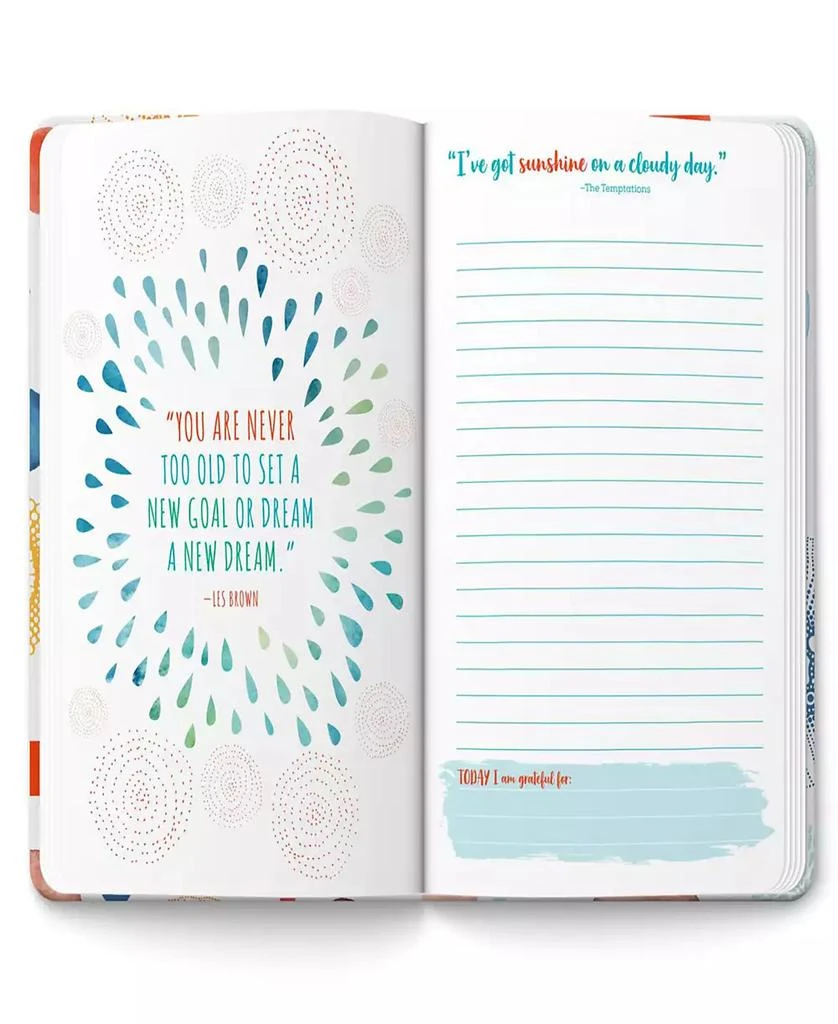 “YOU ARE NEVER
TOO OLD TO SET A
NEW GOAL OR DREAM
A NEW DREAM.”
—LES BROWN
“I’ve got sunshine on a cloudy day.”
–The Temptations
TODAY I am grateful for: